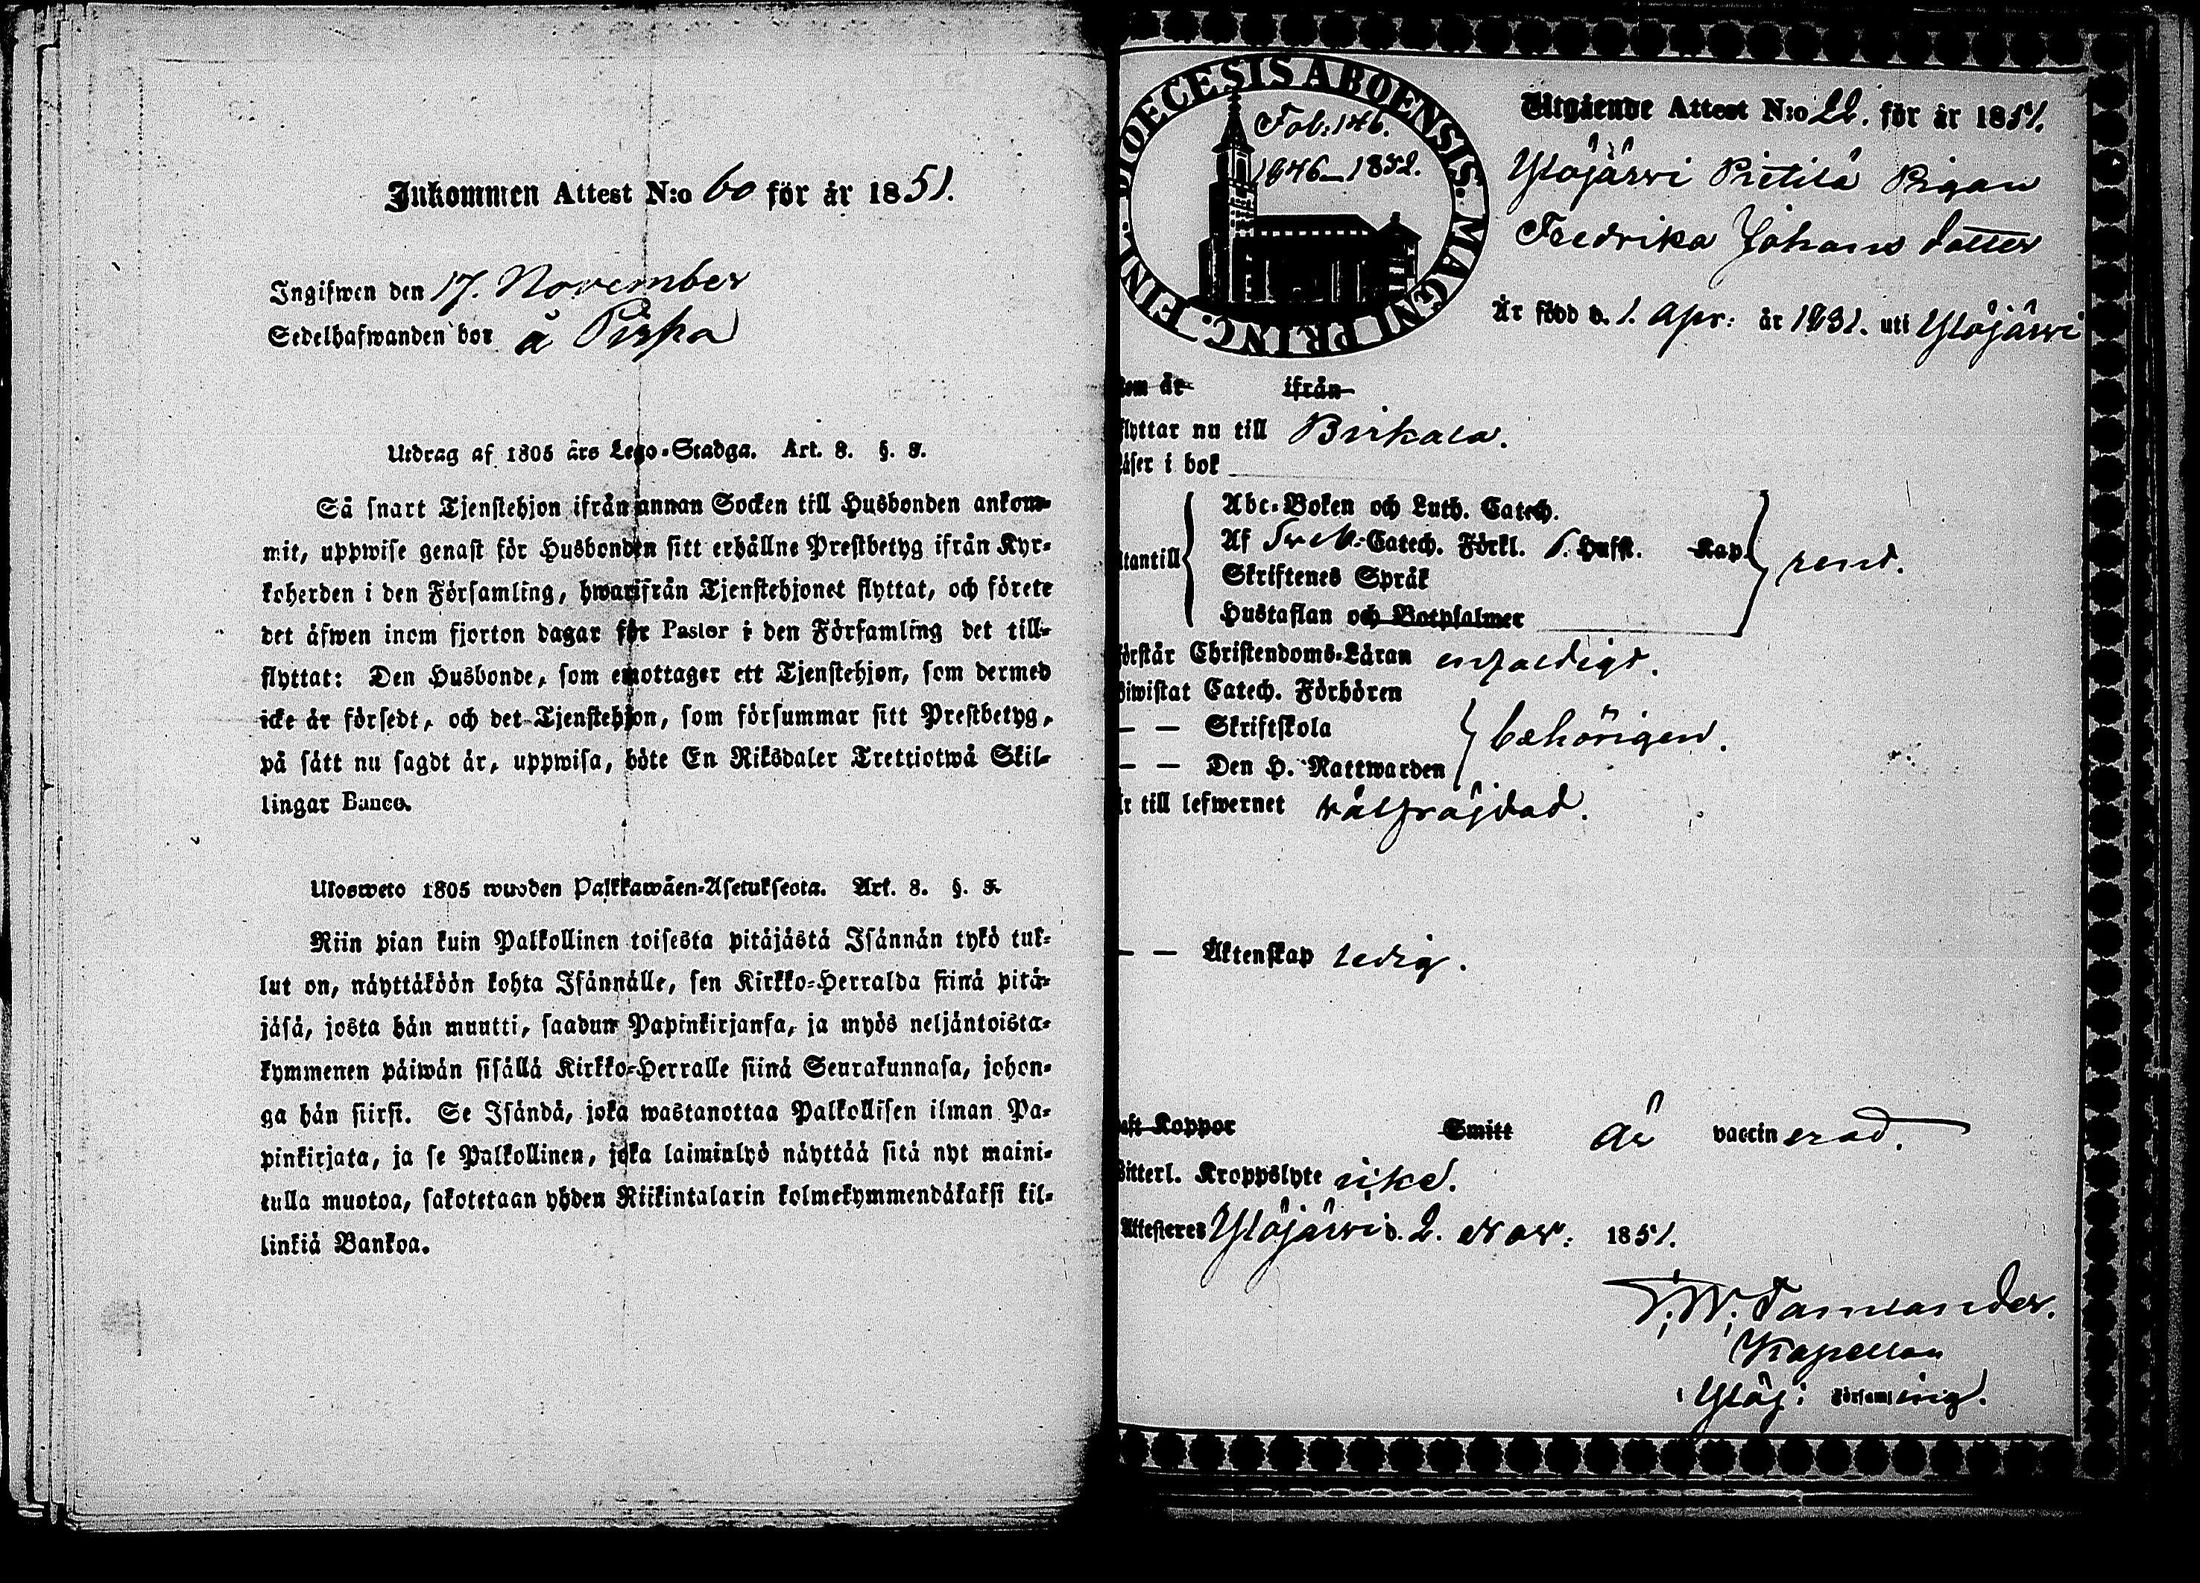 Inkommen Attest N:o 60 för år 1851.
Ingifwen den 17. November
Sedelhafwanden bor å Pispa
Utdrag af 1805 års Lego-Stadga. Art. 8. §. 8.
Så snart Tjenstehjon ifrån annan Socken till Husbonden ankom-
mit, uppwise genast för Husbonden sitt erhållne Prestbetyg ifrån Kyr-
koherden i den Församling, hwarifrån Tjenstehjonet flyttat, och förete
det äfwen inom fjorton dagar för Pastor i den Församling det till-
flyttat: Den Husbonde, som emottager ett Tjenstehjon, som dermed
icke är försedt, och det Tjenstehjon, som försummar sitt Prestbetyg,
på sätt nu sagdt är, uppwisa, böte En Riksdaler Trettiotwå Skil-
lingar Banco.
Ulosweto 1805 wuoden Palkkawäen-Asetuksesta. Art. 8. §. 8.
Niin pian kuin Palkollinen toisesta pitäjästä Isännän tykö tul-
lut on, näyttäköön kohta Isännälle, sen Kirkko-Herralda siinä pitä-
jäsä, josta hän muutti, saadun Papinkirjansa, ja myös neljäntoista-
kymmenen päiwän sisällä Kirkko-Herralle siinä Seurakunnasa, johon-
ga hän siirsi. Se Isändä, joka wastanottaa Palkollisen ilman Pa-
pinkirjata, ja se Palkollinen, joka laiminlyö näyttää sitä nyt maini-
tulla muotoa, sakotetaan yhden Riikintalarin kolmekymmendäkaksi kil-
linkiä Bankoa.
DIOECESIS ABOENSIS. MAGNI PRINC. FINL.
Fol: 146.
1846–1852.
Utgående Attest N:o 22. för år 1851.
Ylöjärwi Pietilä Pigan
Fredrika Johans dotter
Är född d. 1. Apr: år 1831. uti Ylöjärwi
kom år ifrån
flyttar nu till Birkala.
läser i bok
Utantill
Abc-Boken och Luth. Catech.
Af Catech. Förkl. Hufst. Kap.
Skriftenes Språk
Hustaflan och Botpsalmer
rent.
förstår Christendoms-Läran enfaldigt.
Biwistat Catech. Förhören
— — Skriftskola
— — Den H. Nattwarden
behörigen.
Är till lefwernet wälfräjdad.
— — Äktenskap ledig.
haft Koppor Smitt är vaccinerad.
Witterl. Kroppslyte icke.
Attesteres Ylöjärwi d. 2. Nov: 1851.
Kapellan
i Ylöj: Församling.